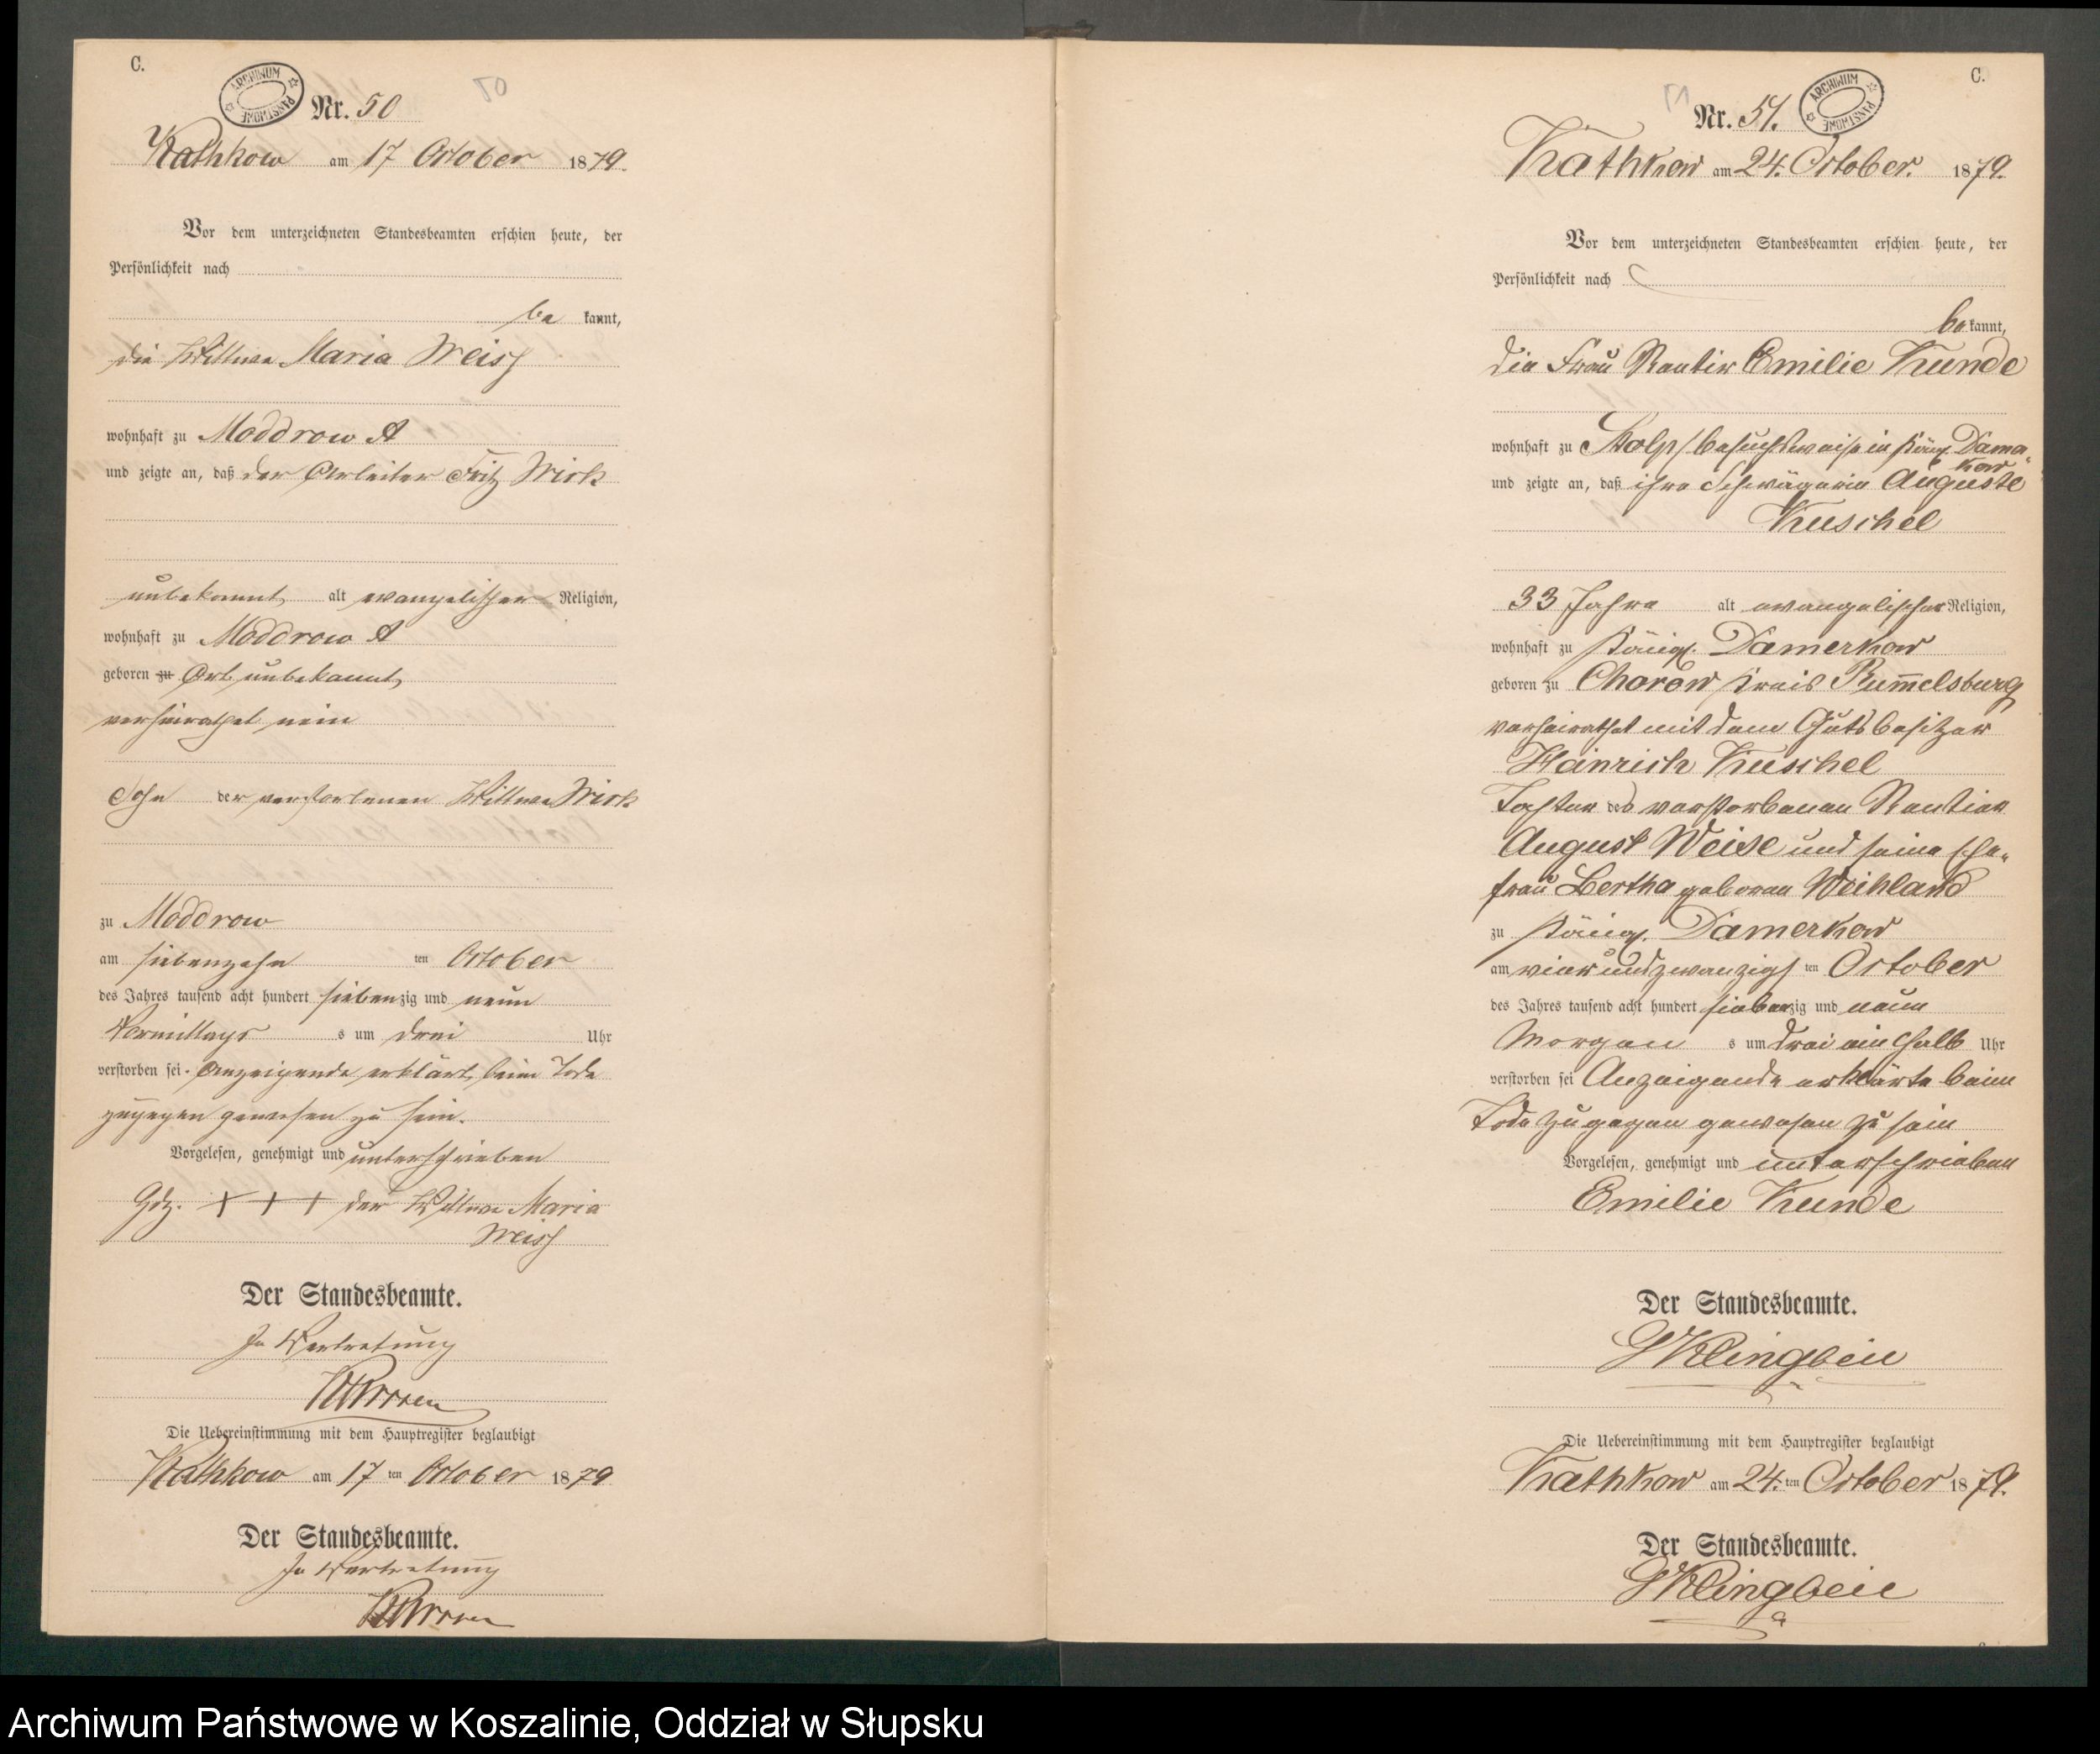 C.
ARCHIWUM PAŃSTWOWE
Nr. 50
50
Kathkow am 17 October 1879.
Vor dem unterzeichneten Standesbeamten erschien heute, der
Persönlichkeit nach
be kannt,
die Wittwe Maria Weiss
wohnhaft zu Moddrow A
und zeigte an, daß der Arbeiter Fritz Wirk
unbekannt alt evangelischer Religion,
wohnhaft zu Moddrow A
geboren zu Ort unbekannt,
verheirathet nein
Sohn der verstorbenen Wittwe Wirk
zu Moddrow
am siebenzehn ten October
des Jahres tausend acht hundert siebenzig und neun
Vormittags s um drei Uhr
verstorben sei. Anzeigende erklärt, beim Tode
zugegen gewesen zu sein.
Vorgelesen, genehmigt und unterschrieben
Hdz. + + + der Wittwe Maria
Weiss
Der Standesbeamte.
In Vertretung
Die Uebereinstimmung mit dem Hauptregister beglaubigt
Kathkow am 17 ten October 1879
Der Standesbeamte.
In Vertretung
C.
51
Nr. 51.
ARCHIWUM PAŃSTWOWE
Kathkow am 24. October. 1879.
Vor dem unterzeichneten Standesbeamten erschien heute, der
Persönlichkeit nach
be kannt,
die Frau Rentier Emilie Kunde
wohnhaft zu Stolp / besuchsweise in Königl. Damer-
kow
und zeigte an, daß ihre Schwägerin Auguste
Kuschel
33 Jahre alt evangelischer Religion,
wohnhaft zu Königl. Damerkow
geboren zu Chorow Kreis Rummelsburg
verheirathet mit dem Gutsbesitzer
Heinrich Kuschel
Tochter des verstorbenen Rentier
August Weise und seine Ehe-
frau Bertha geboren Weihland
zu Königl. Damerkow
am vierundzwanzigs ten October
des Jahres tausend acht hundert siebenzig und neun
Morgen s um drei ein halb Uhr
verstorben sei Anzeigende erklärte beim
Tode zugegen gewesen zu sein
Vorgelesen, genehmigt und unterschrieben
Emilie Kunde
Der Standesbeamte.
Klingbeil
Die Uebereinstimmung mit dem Hauptregister beglaubigt
Kathkow am 24. ten October 1879.
Der Standesbeamte.
Klingbeil
Archiwum Państwowe w Koszalinie, Oddział w Słupsku